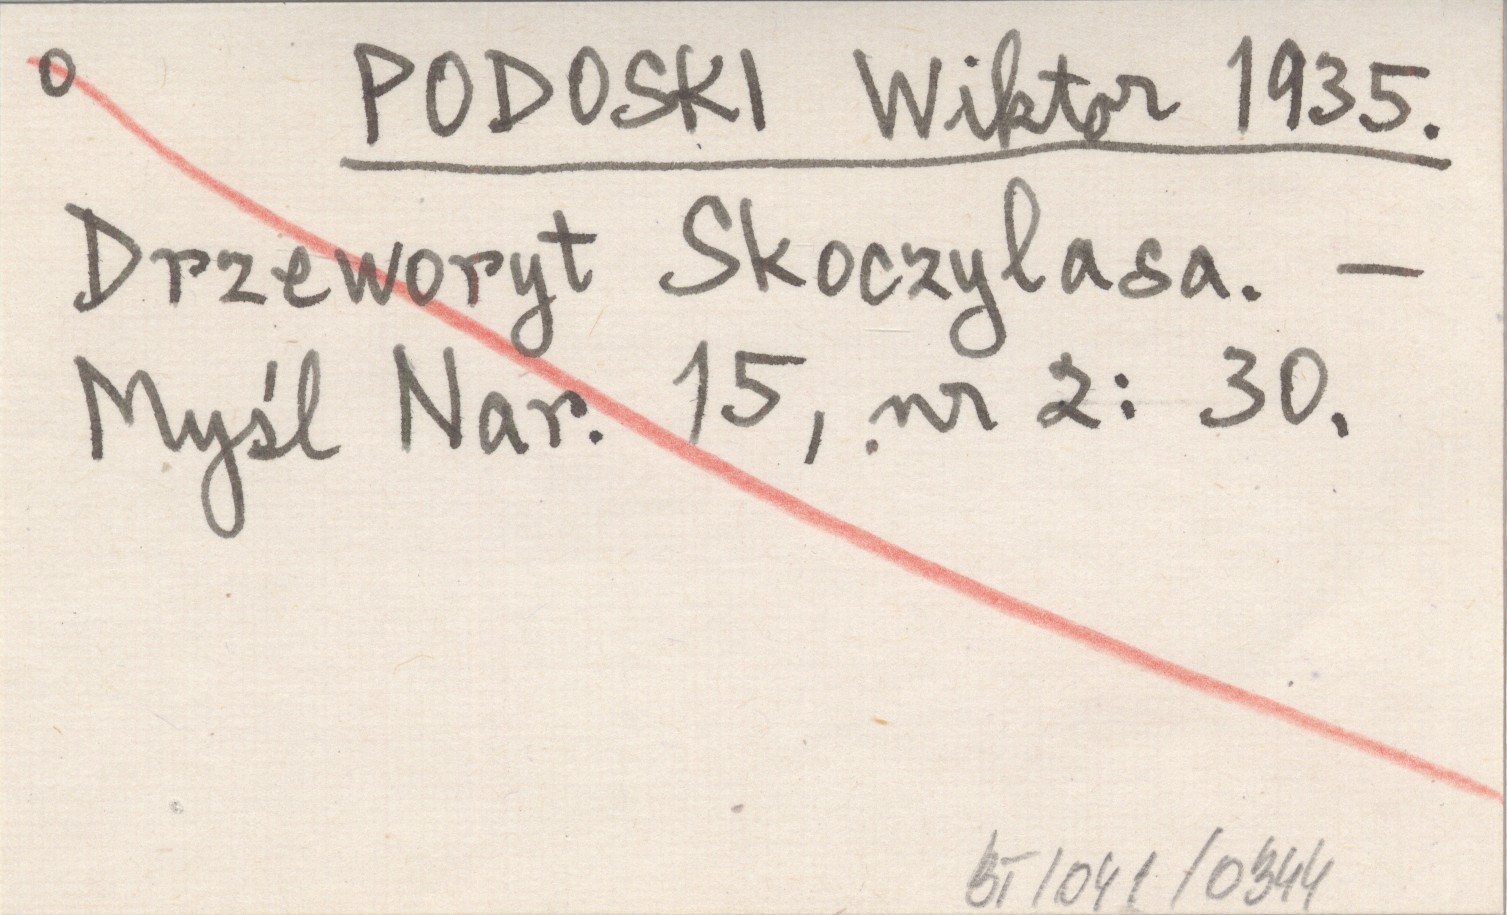 o PODOSKI Wiktor 1935.
Drzeworyt Skoczylasa. —
Myśl Nar. 15, nr 2: 30.
BI/041/0344